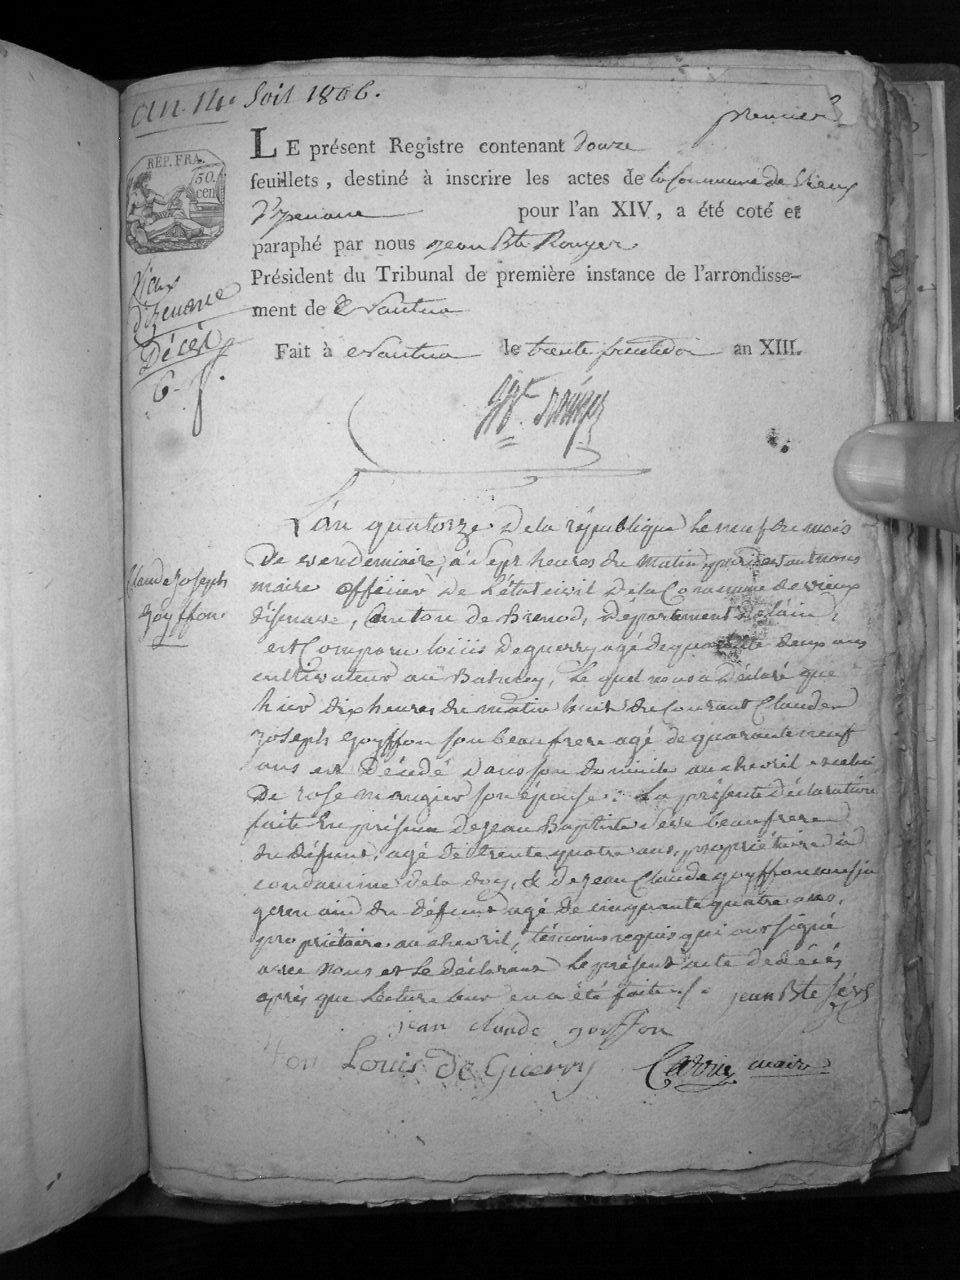 an 14e Soit 1806.
premier
RÉP. FRA.
50.
cen
LE présent Registre contenant douze
feuillets, destiné à inscrire les actes de la Commune de Vieux
d'yzenave pour l'an XIV, a été coté et
paraphé par nous jean Bte Rouyer
Président du Tribunal de première instance de l'arrondisse-
ment de Nantua
Fait à Nantua le trente fructidor an XIII.
Vieux
d'izenave
Décès
6
Claude joseph
goyffon.
L'an quatorze de la république le neuf du mois
de vendemiaire, à sept heures du matin, pardevant nous
maire officier de l'état civil de la Commune de vieux
d'isenave, Canton de Brenod, Département de lain,
est Comparu loüis Deguerry agé de quarante deux ans
cultivateur au Balmey, lequel nous a déclaré que
hier dix heures du matin huit du Courant Claude
joseph goyffon son beau frere agé de quarante neuf
ans est Décédé dans son domicile au chevril
De rose mangier son épouse. La présente déclaration
faite en présence de jean Baptiste sève beau frere
du défunt, agé de trente quatre ans, propriétaire à
condamine de la doy, & de jean Claude goyffon cousin
germain du défunt agé de cinquante quatre ans,
propriétaire au chevril, témoins requis qui ont signé
avec nous et le déclarant le présent acte de décès
après que lecture leur en a été faite. jean Bte Sève
jean claude goiffon
Louis de Guerry
maire